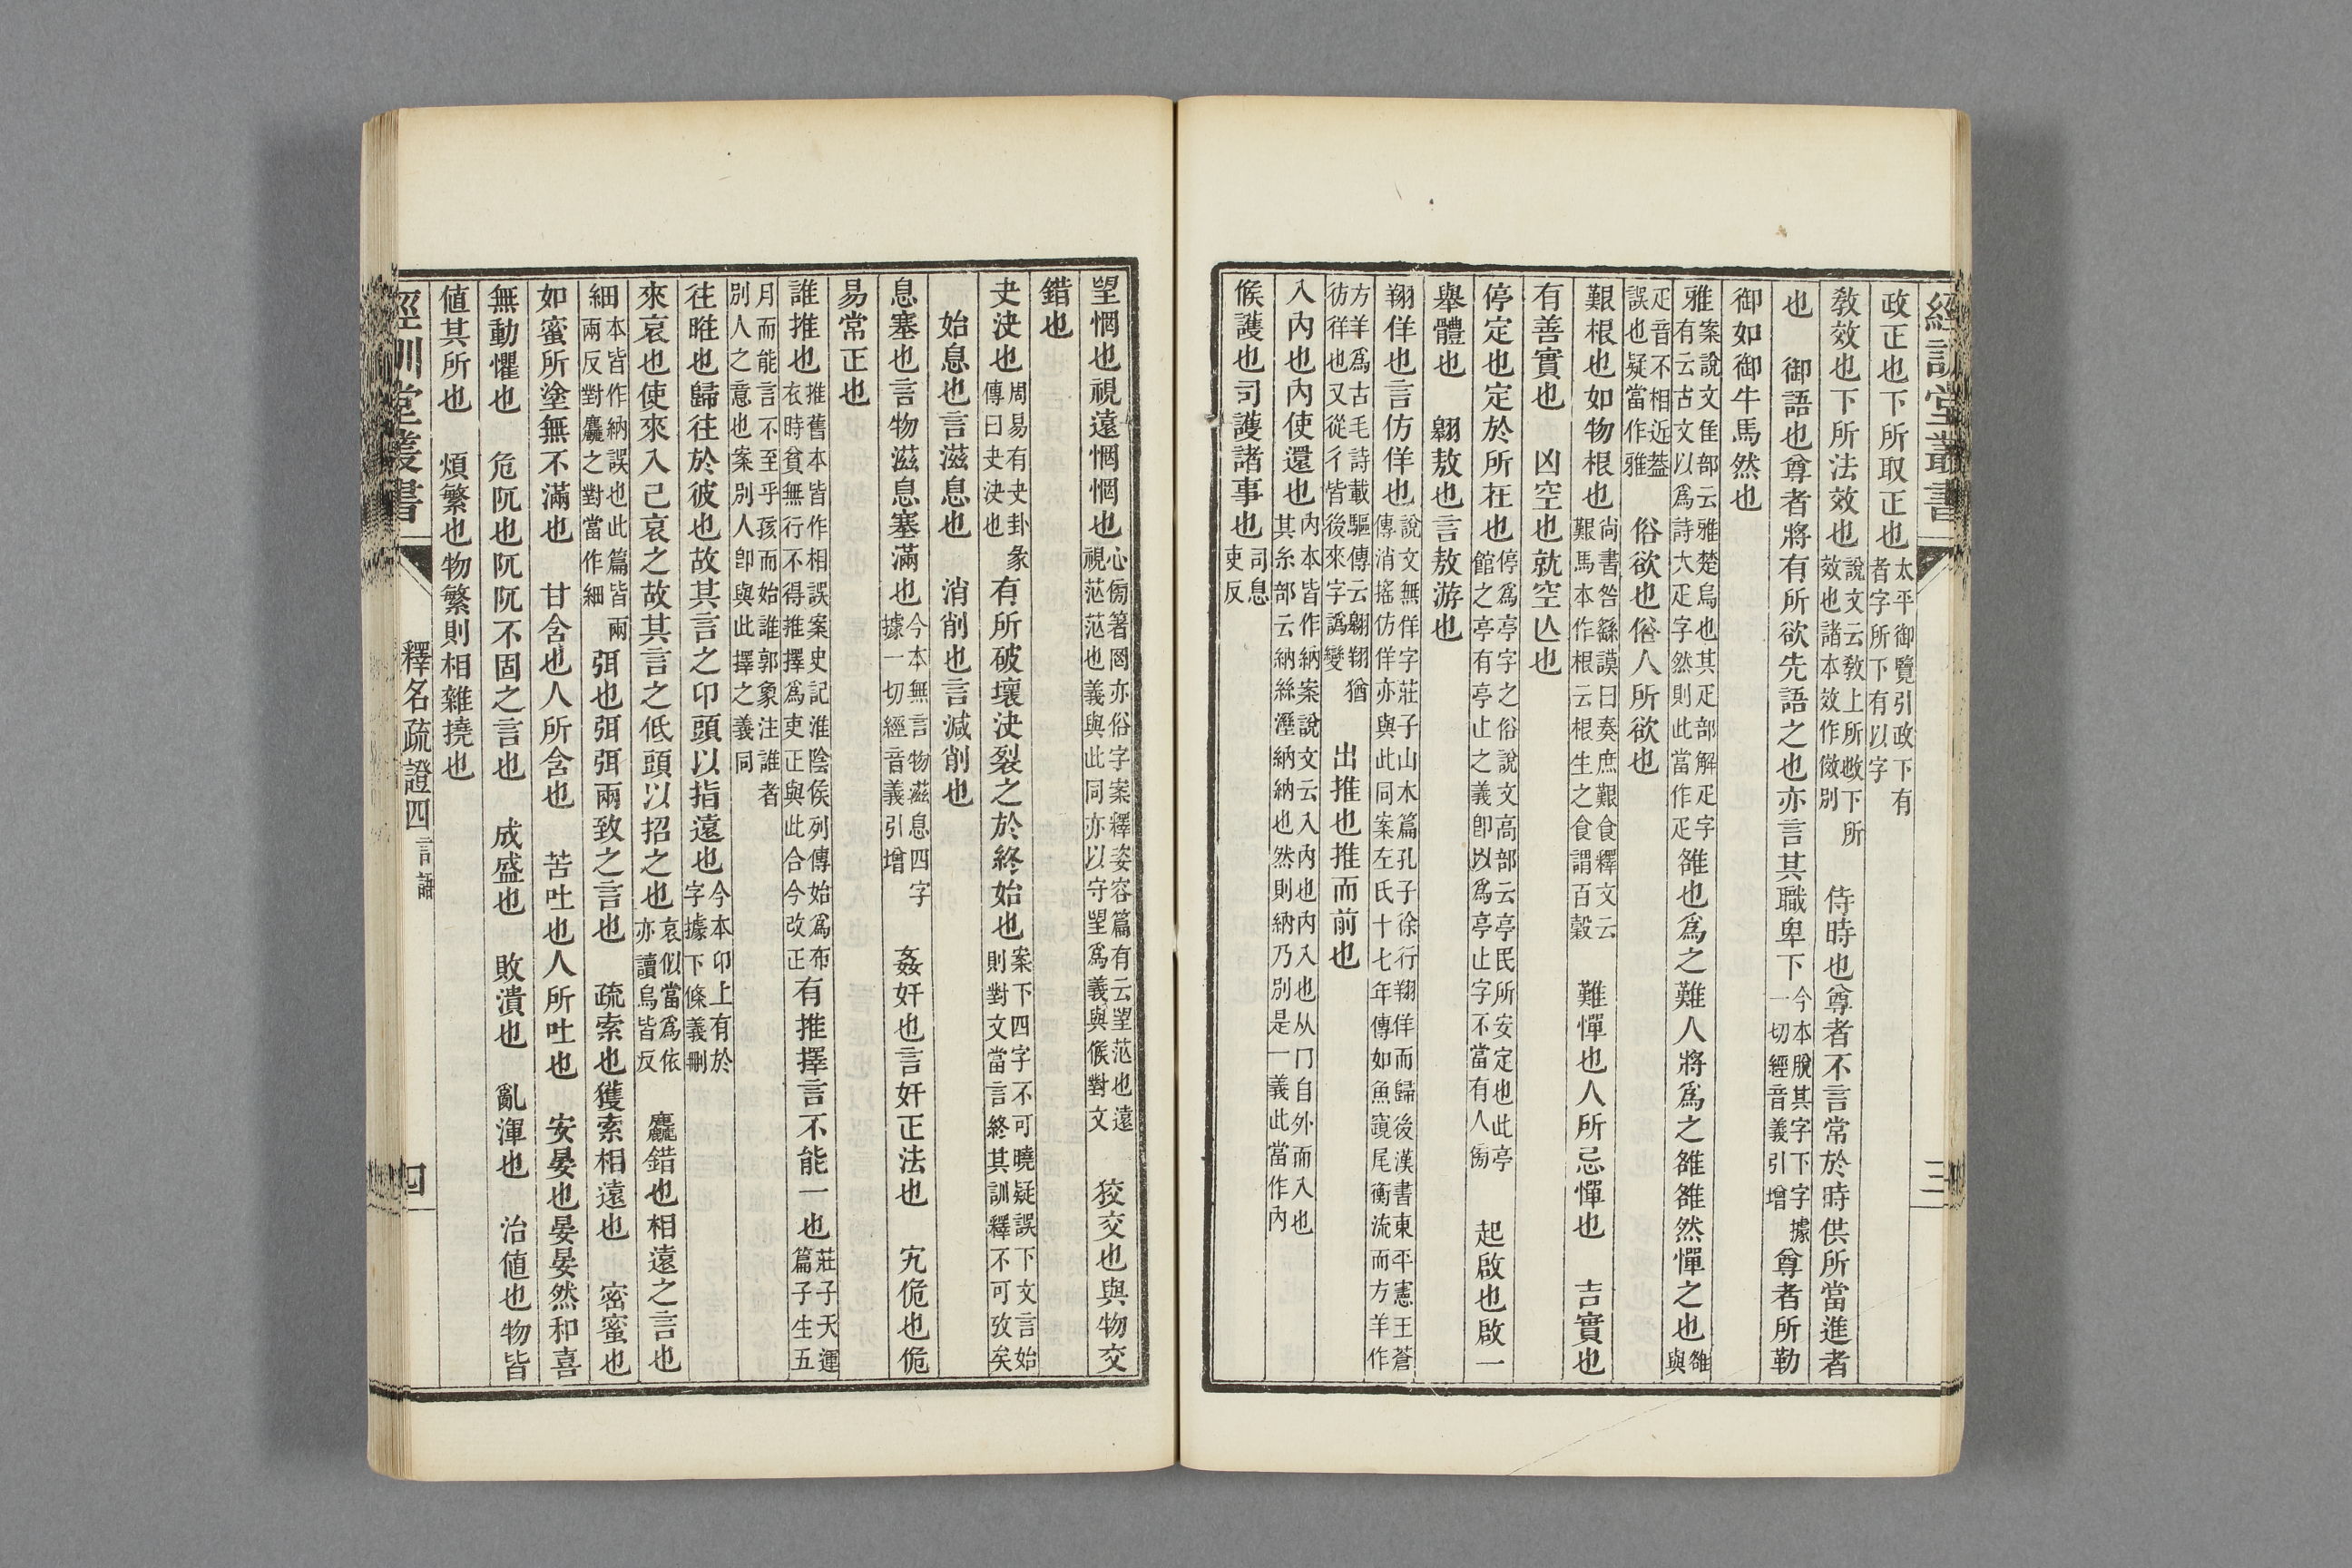 經訓堂叢書
三
政正也下所取正也太平御覽引政下有者字所下有以字
敎效也下所法效也說文云敎上所施下所效也諸本效作傚別 侍時也尊者不言常於時供所當進者
也 御語也尊者將有所欲先語之也亦言其職卑下今本脫其字下字據一切經音義引增尊者所勒
御如御牛馬然也
雅案說文隹部云雅楚烏也其疋部解疋字有云古文以爲詩大疋字然則此當作疋雒也爲之難人將爲之雒雒然憚之也雒與
疋音不相近葢誤也疑當作雅 俗欲也俗人所欲也
艱根也如物根也尙書咎繇謨曰奏庶艱食釋文云艱馬本作根云根生之食謂百穀 難憚也人所忌憚也 吉實也
有善實也 凶空也就空亾也
停定也定於所在也停爲亭字之俗說文高部云亭民所安定也此亭館之亭有亭止之義卽以爲亭止字不當有人㑄 起啟也啟一
舉體也 翱敖也言敖游也
翔佯也言仿佯也說文無佯字莊子山木篇孔子徐行翔佯而歸後漢書東平憲王蒼傳消搖仿佯亦與此同案左氏十七年傳如魚竀尾衡流而方羊作
方羊爲古毛詩載驅傳云翱翔猶彷徉也又從彳皆後來字譌變 出推也推而前也
入內也內使還也內本皆作納案說文云入內也內入也从冂自外而入也其糸部云納絲溼納納也然則納乃別是一義此當作內
候護也司護諸事也司息吏反
朢惘也視遠惘惘也心㑄著罔亦俗字案釋姿容篇有云朢茫也遠視茫茫也義與此同亦以守朢爲義與候對文 狡交也與物交
錯也
夬決也周易有夬卦彖傳曰夬決也有所破壞決裂之於終始也案下四字不可曉疑誤下文言始則對文當言終其訓釋不可攷矣
始息也言滋息也 消削也言減削也
息塞也言物滋息塞滿也今本無言物滋息四字據一切經音義引增 姦奸也言奸正法也 宄佹也佹
易常正也
誰推也推舊本皆作相誤案史記淮陰侯列傳始爲布衣時貧無行不得推擇爲吏正與此合今改正有推擇言不能一也莊子天運篇子生五
月而能言不至乎孩而始誰郭象注誰者別人之意也案別人卽與此擇之義同
往暀也歸往於彼也故其言之卬頭以指遠也今本卬上有於字據下條義刪
來哀也使來入己哀之故其言之低頭以招之也哀似當爲依亦讀烏皆反 麤錯也相遠之言也
細本皆作納誤也此篇皆兩兩反對麤之對當作細弭也弭弭兩致之言也 疏索也獲索相遠也 密蜜也
如蜜所塗無不滿也 甘含也人所含也 苦吐也人所吐也 安晏也晏晏然和喜
無動懼也 危阢也阢阢不固之言也 成盛也 敗潰也 亂渾也 治値也物皆
値其所也 煩繁也物繁則相雜撓也
經訓堂叢書
釋名疏證四言語
四